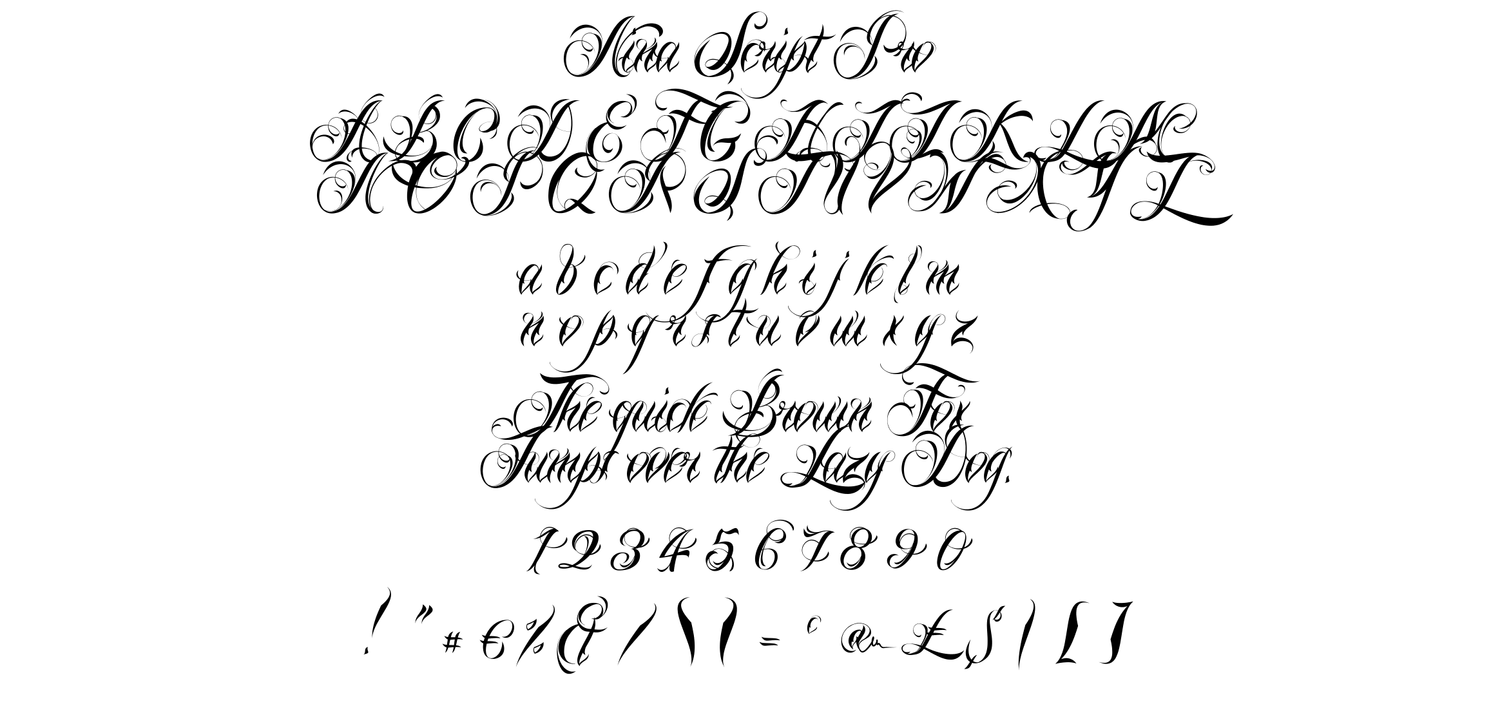 Nina Script Pro
A B C D E F G H I J K L M
N O P Q R S T U V W X Y Z
a b c d e f g h i j k l m
n o p q r s t u v w x y z
The quick Brown Fox
Jumps over the Lazy Dog.
1 2 3 4 5 6 7 8 9 0
! " # € % & / \ | = c @ £ $ | [ ]